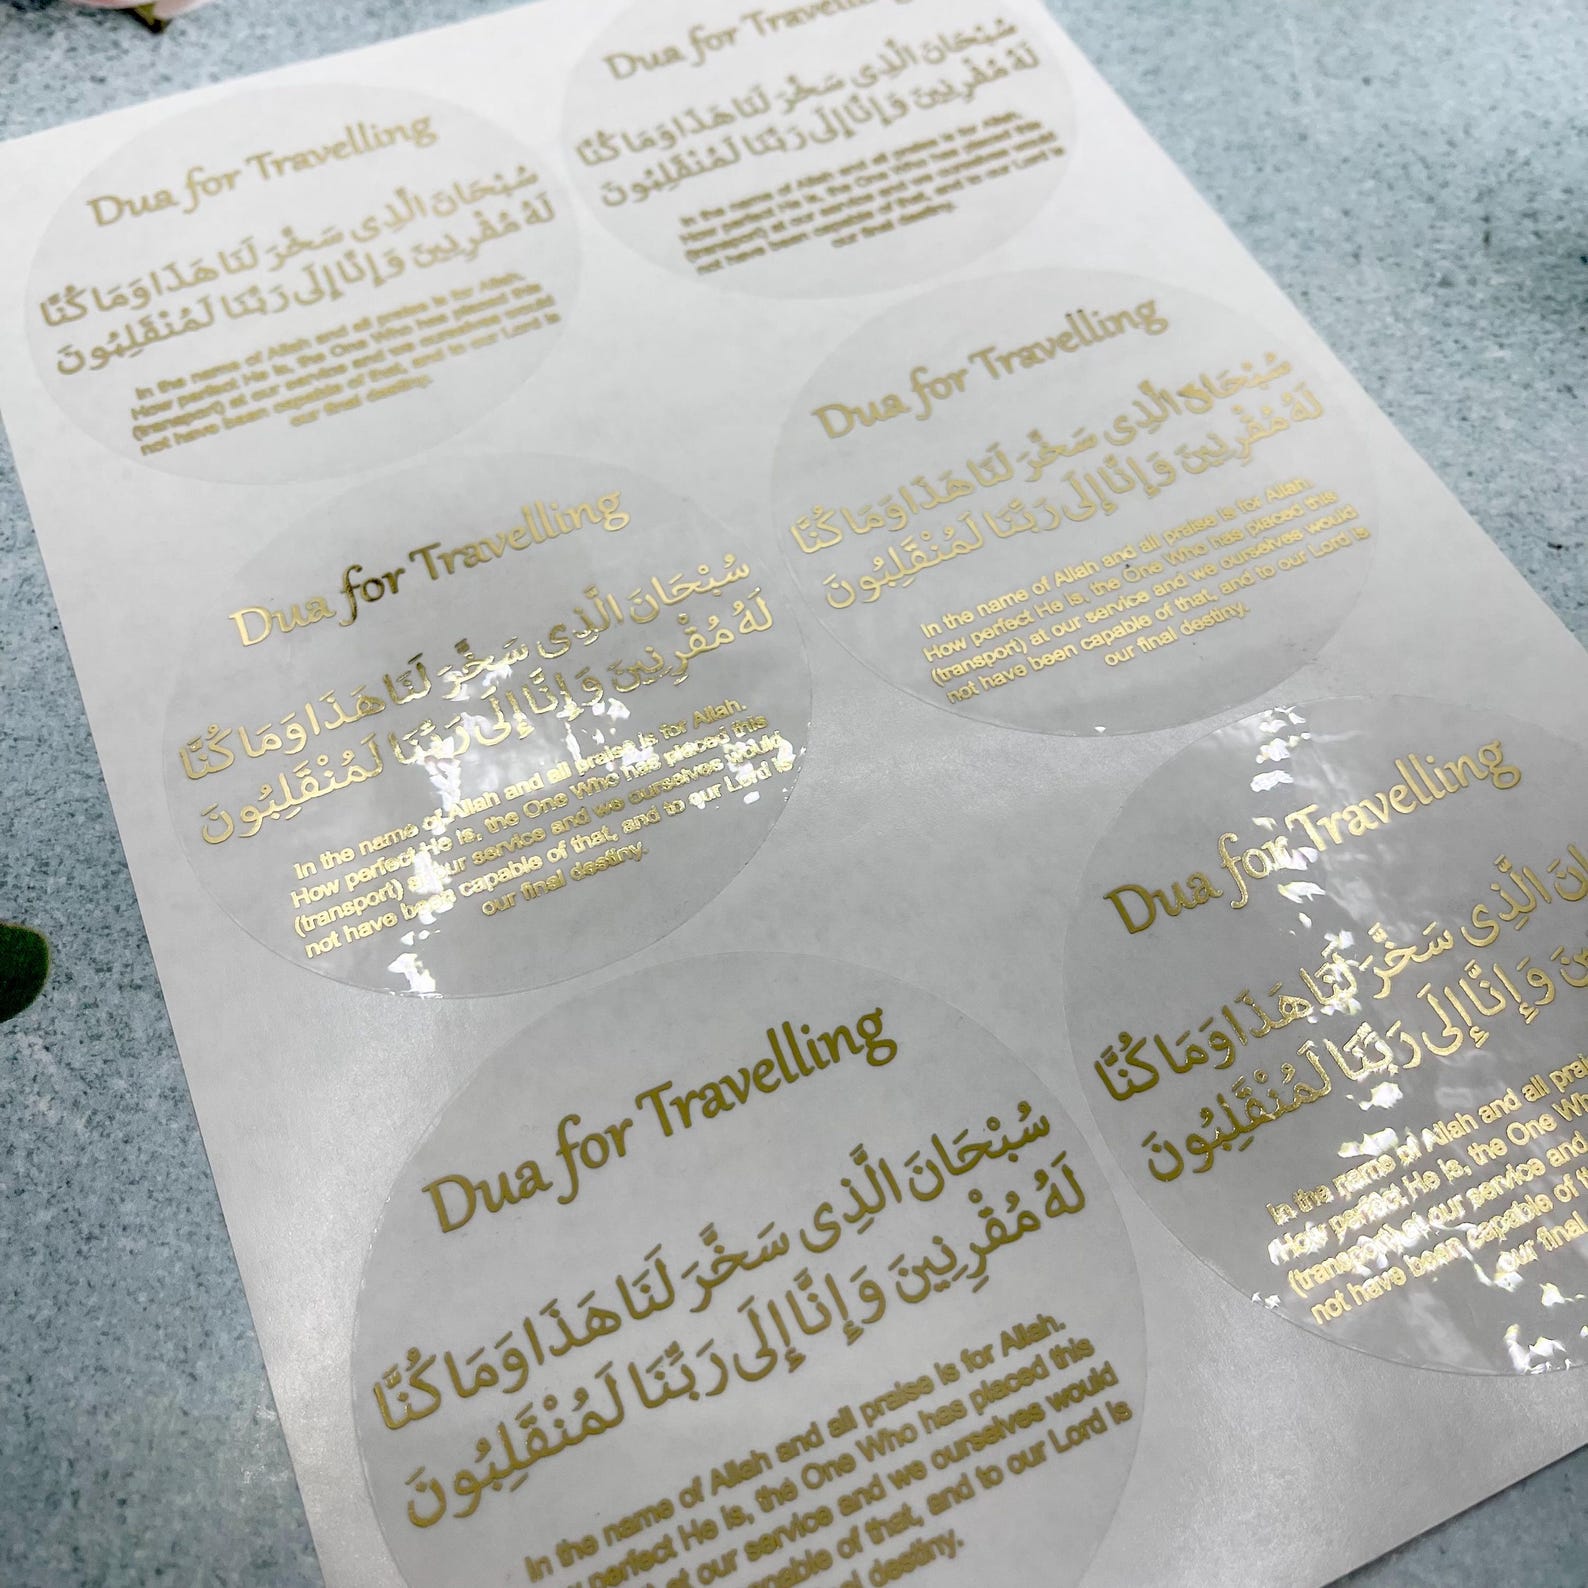 Dua for Travelling
سُبْحَانَ الَّذِى سَخَّرَ لَنَا هَذَا وَمَا كُنَّا
لَهُ مُقْرِنِينَ وَإِنَّا إِلَى رَبِّنَا لَمُنْقَلِبُونَ
In the name of Allah and all praise is for Allah.
How perfect He is, the One Who has placed this
(transport) at our service and we ourselves would
not have been capable of that, and to our Lord is
our final destiny.
Dua for Travelling
سُبْحَانَ الَّذِى سَخَّرَ لَنَا هَذَا وَمَا كُنَّا
لَهُ مُقْرِنِينَ وَإِنَّا إِلَى رَبِّنَا لَمُنْقَلِبُونَ
In the name of Allah and all praise is for Allah.
How perfect He is, the One Who has placed this
(transport) at our service and we ourselves would
not have been capable of that, and to our Lord is
our final destiny.
Dua for Travelling
سُبْحَانَ الَّذِى سَخَّرَ لَنَا هَذَا وَمَا كُنَّا
لَهُ مُقْرِنِينَ وَإِنَّا إِلَى رَبِّنَا لَمُنْقَلِبُونَ
In the name of Allah and all praise is for Allah.
How perfect He is, the One Who has placed this
(transport) at our service and we ourselves would
not have been capable of that, and to our Lord is
our final destiny.
Dua for Travelling
سُبْحَانَ الَّذِى سَخَّرَ لَنَا هَذَا وَمَا كُنَّا
لَهُ مُقْرِنِينَ وَإِنَّا إِلَى رَبِّنَا لَمُنْقَلِبُونَ
In the name of Allah and all praise is for Allah.
How perfect He is, the One Who has placed this
(transport) at our service and we ourselves would
not have been capable of that, and to our Lord is
our final destiny.
Dua for Travelling
سُبْحَانَ الَّذِى سَخَّرَ لَنَا هَذَا وَمَا كُنَّا
لَهُ مُقْرِنِينَ وَإِنَّا إِلَى رَبِّنَا لَمُنْقَلِبُونَ
In the name of Allah and all praise is for Allah.
perfect He is, the One Who has placed this
at our service and we ourselves would
capable of that, and to our Lord is
destiny.
Dua for Travelling
الَّذِى سَخَّرَ لَنَا هَذَا وَمَا كُنَّا
وَإِنَّا إِلَى رَبِّنَا لَمُنْقَلِبُونَ
In the name of Allah and all
How perfect He is, the One
(transport) at our service and
not have been capable of
our final